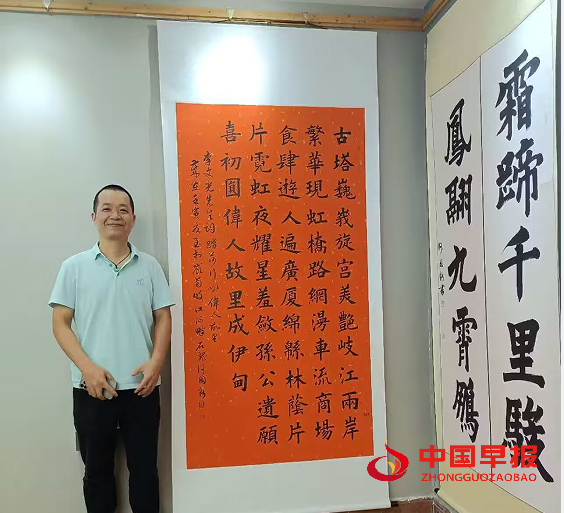 古塔巍峩旋宮美艷岐江兩岸
繁華現虹橋路網湯車流商場
食肆遊人遍廣厦綿緜林蔭片
片霓虹夜耀星羞斂孫公遺願
喜初圓偉人故里成伊甸
霜蹄千里駿
鳳翮九霄鵬
中国早报
ZHONGGUOZAOBAO